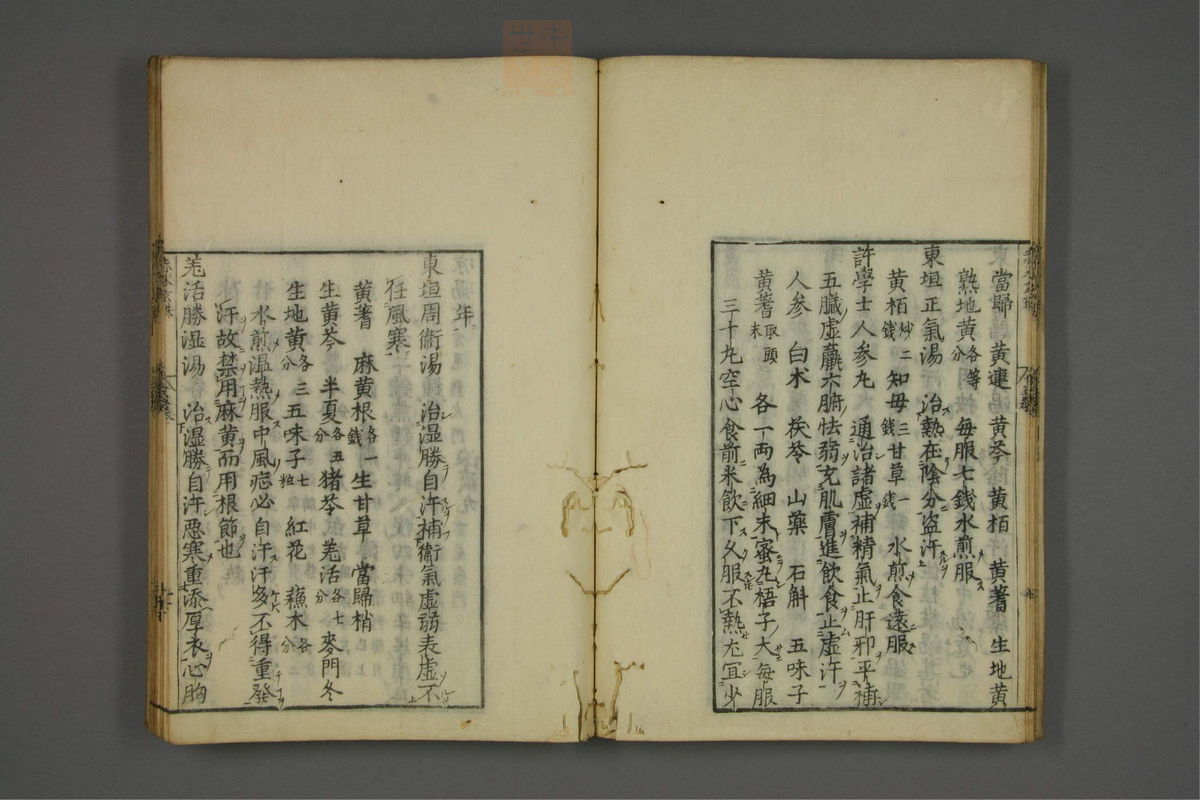 當歸 黃連 黃芩 黃栢 黃蓍 生地黃
熟地黃各等分 每服七錢水煎服
東垣正氣湯 治熱在陰分盜汗
黃栢炒二錢 知母三錢 甘草一錢 水煎食遠服
許學士人參丸 通治諸虛補精氣止肝邪平補
五臟虛羸六腑怯弱充肌膚進飲食止虛汗
人參 白朮 茯苓 山藥 石斛 五味子
黃蓍取頭末 各一両為細末蜜丸梧子大每服
三十丸空心食前米飲下久服不熱尤宜少
年
東垣周衞湯 治湿勝自汗補衞氣虛弱表虛不
任風寒
黃蓍 麻黃根各一錢 生甘草 當歸梢
生黃芩 半夏各五分 猪苓 羌活各七分 麥門冬
生地黃各三分 五味子七粒 紅花 蘓木各一分
水煎温熱服中風症必自汗汗多不得重發
汗故禁用麻黃而用根節也
羌活勝湿湯 治湿勝自汗惡寒重添厚衣心胸